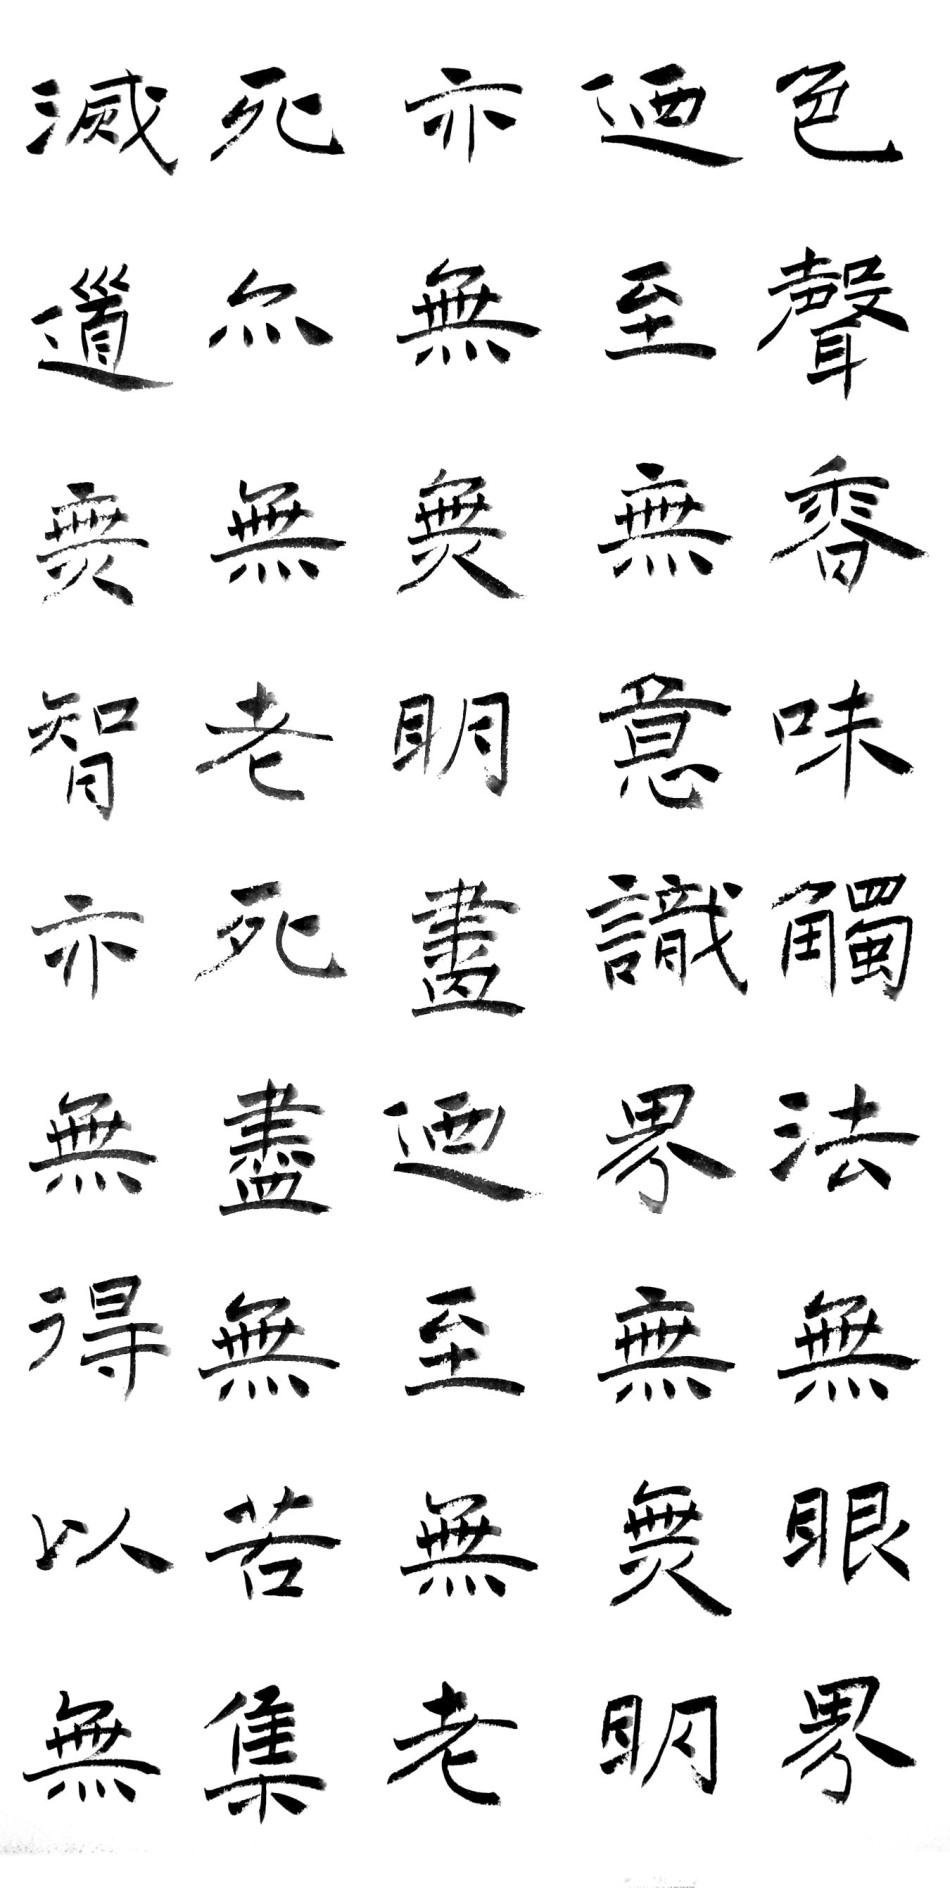 色聲香味觸法無眼界
廼至無意識界無無明
亦無無明盡廼至無老
死亦無老死盡無苦集
滅道無智亦無得以無